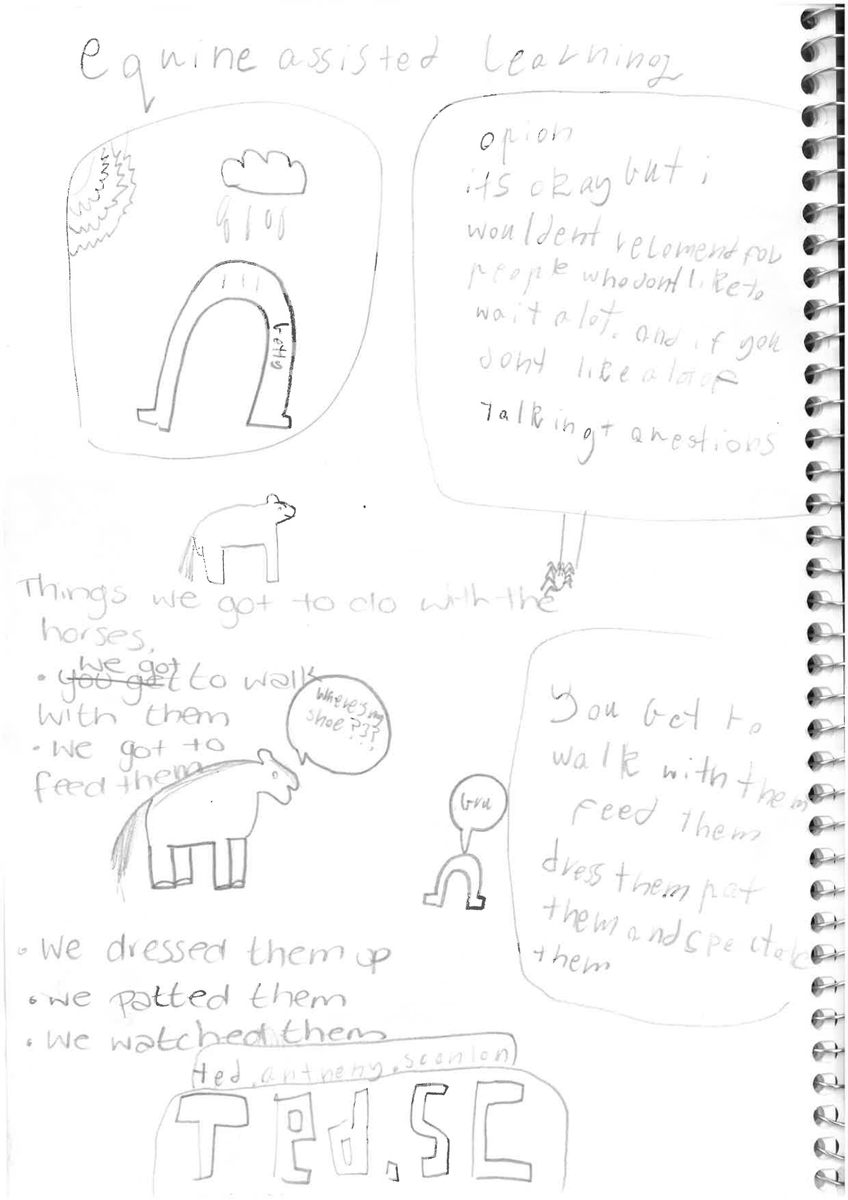 Equine assisted Learning
opion
its okay but i
wouldent recomend for
people who dont like to
wait a lot. and if you
dont like a lot of
Talking + questions
Things we got to do with the
horses.
• we got
you get to walk
with them
• we got to
feed them
Where's my
shoe????
Bru
You Get to
walk with them
feed them
dress them pat
them and spectate
them
• We dressed them up
• we patted them
• We watched them
ted.antheny.scanlon
Ted.SC